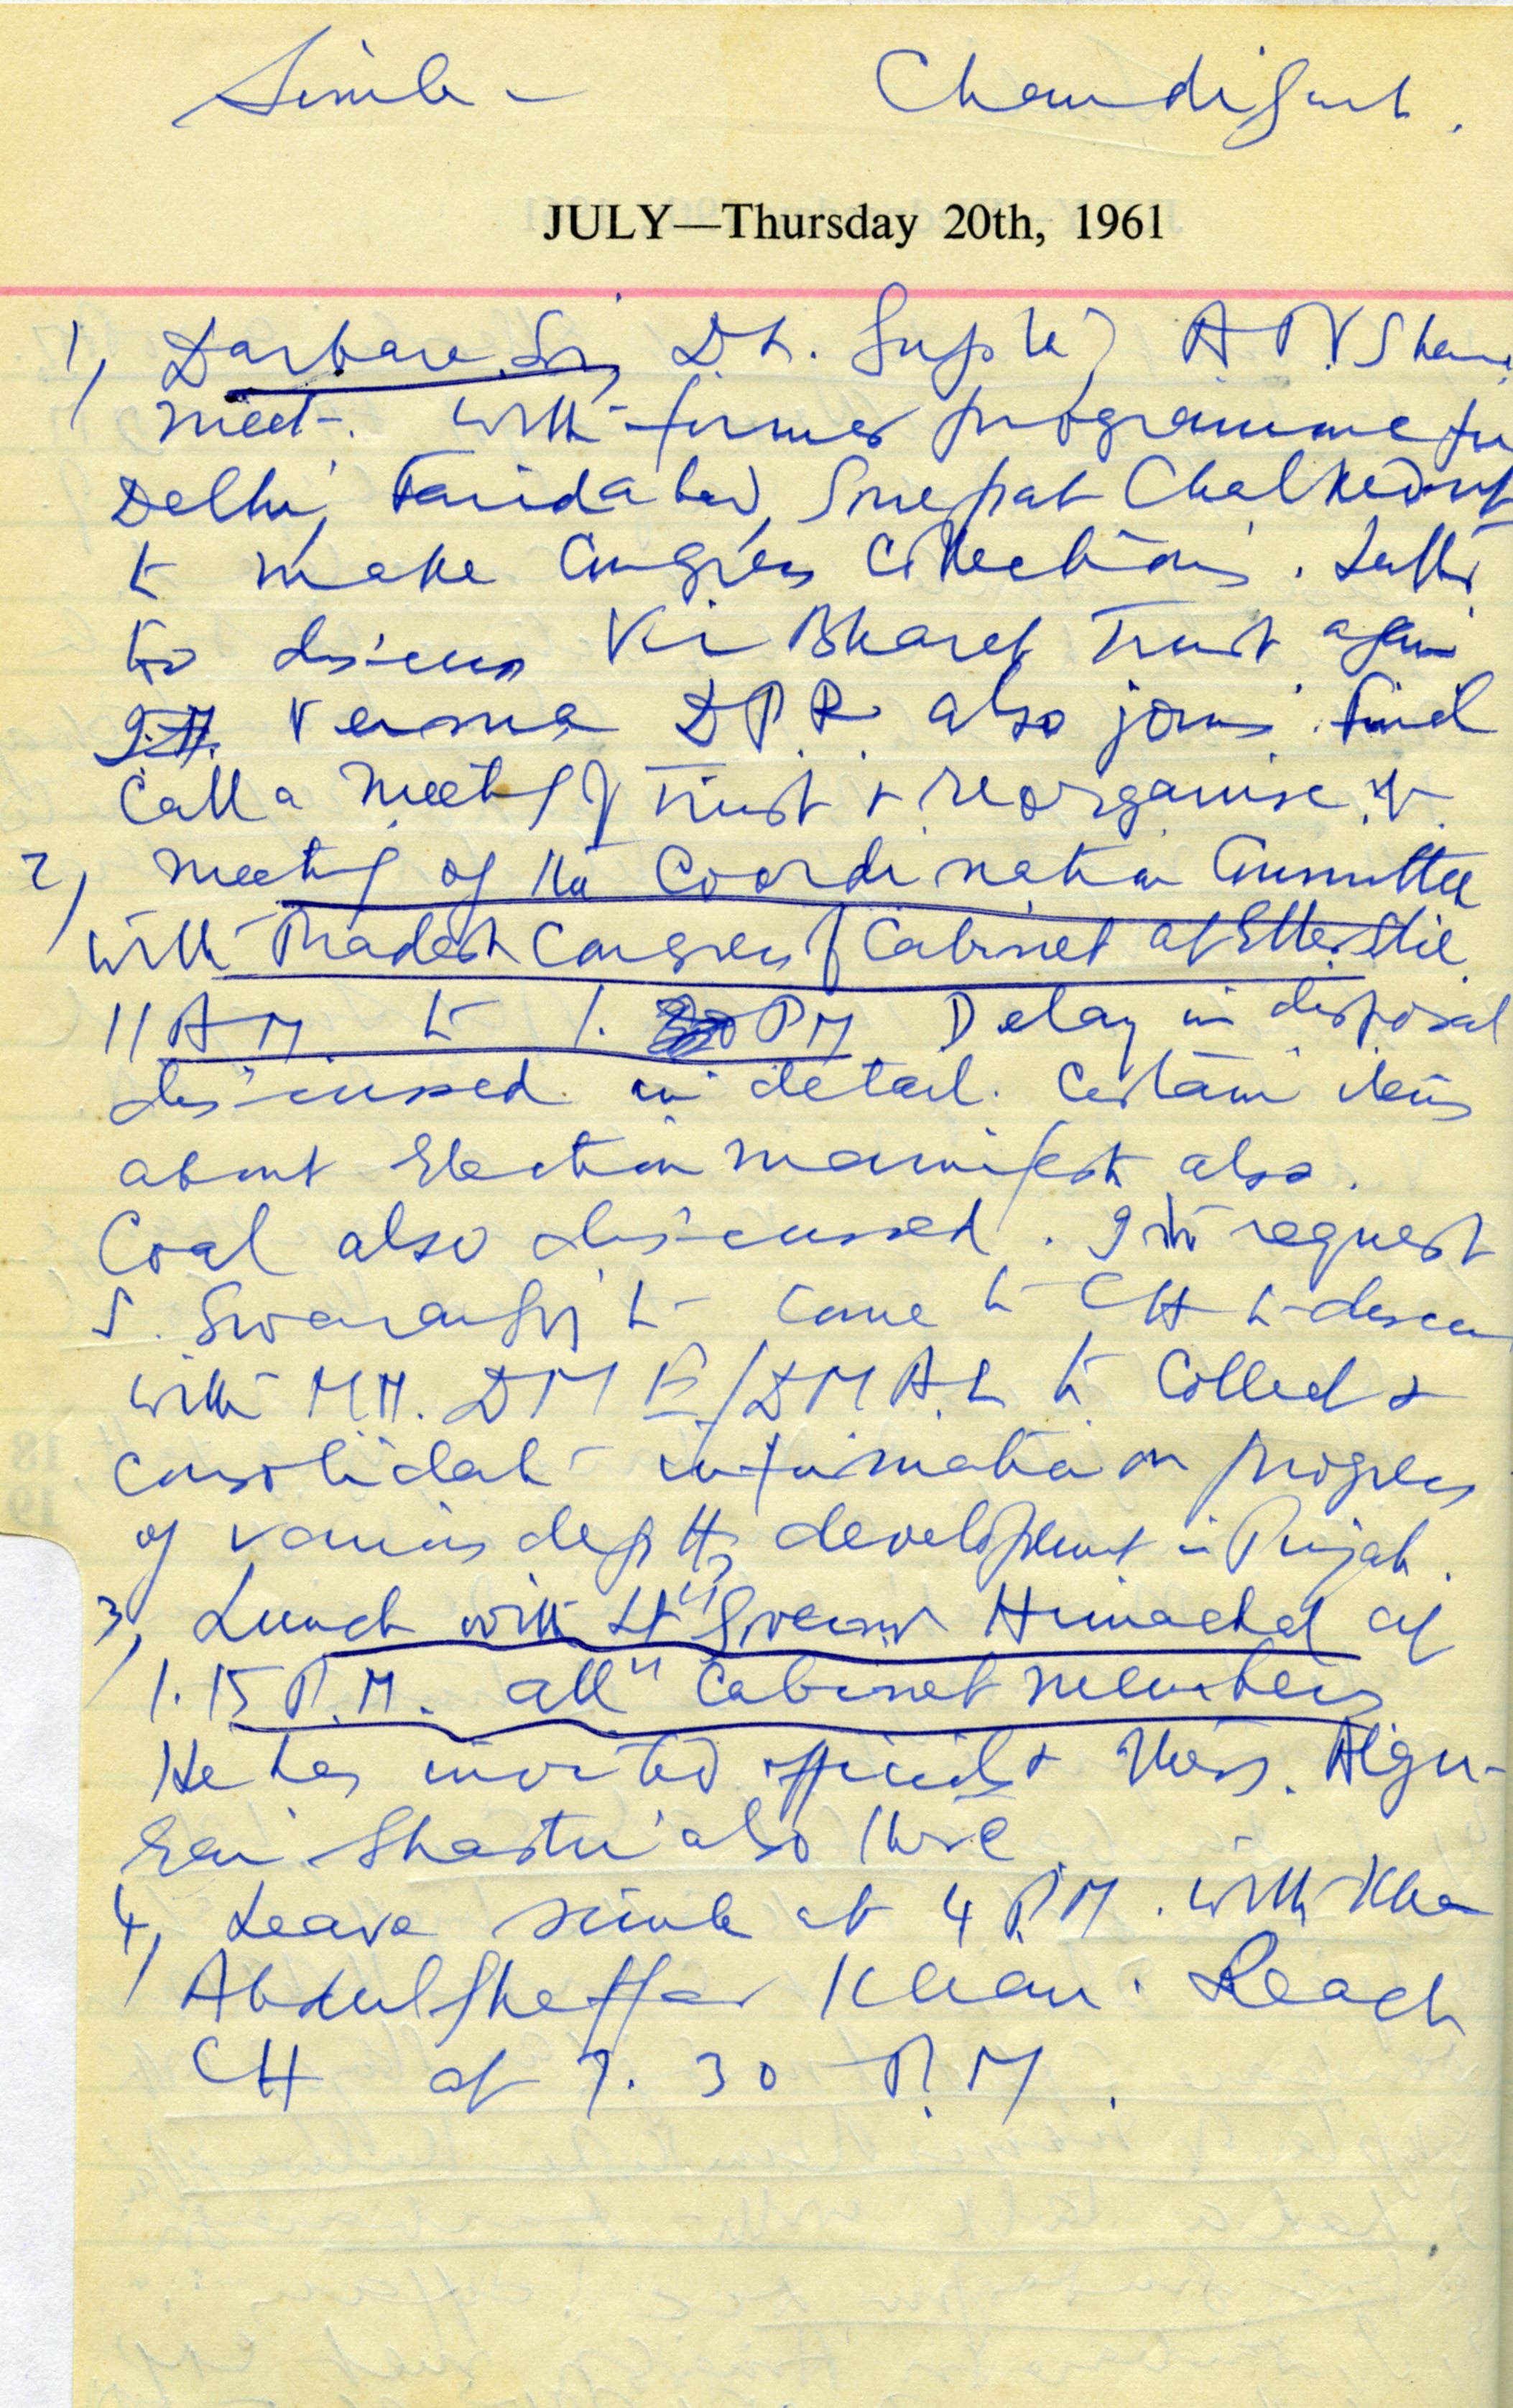 Simla - Chandigarh.
JULY—Thursday 20th, 1961
1, Darbara Sn, Dr. Gupta, A N Sharma
meet. With former programme for
Delhi, Faridabad, Sonepat Chalked out
to make Congress Collections. Latter
to discuss Vir Bharat Trust again
Verma D.P.R. also joins.
Call a meeting of Trust & reorganise it.
2, Meeting of the Coordination Committee
with Pradesh Congress & Cabinet at Ellerslie
11 A M to 1. PM Delay in disposal
discussed in detail. Certain items
about Election manifesto also.
Coal also discussed. I request
S. Swaran Sn to come to CH to discuss
with M.M. to Collect &
consolidate information on progress
of various deptts, development in Punjab.
3, Lunch with Lt Governor Himachal at
1.15 P.M. all Cabinet members
He has invited officials & others. Algu-
Rai Shastri also there
4, Leave Simla at 4 P.M. with Khan
Abdul Ghaffar Khan. Reach
CH at 7.30 P.M.